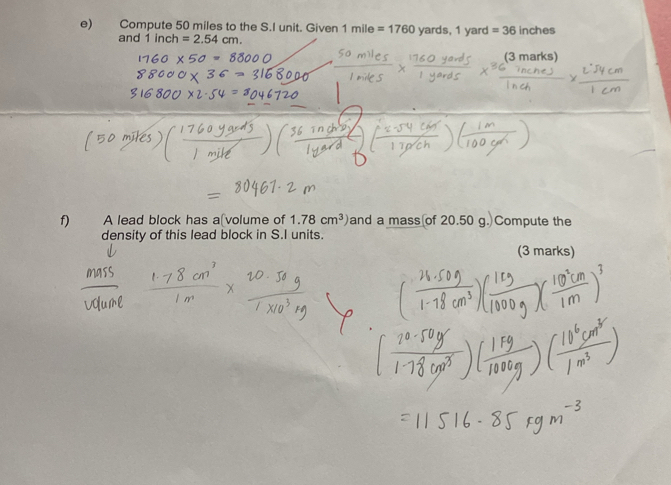 e) Compute 50 miles to the S.I unit. Given 1 mile = 1760 yards, 1 yard = 36 inches
and 1 inch = 2.54 cm.
(3 marks)
1760 × 50 = 88000
88000 × 36 = 3168000
316800 × 2.54 = 8046720
50 miles / 1 miles × 1760 yards / 1 yards × 36 inches / 1 inch × 2.54 cm / 1 cm
(50 miles) (1760 yards / 1 mile) (36 inch / 1 yard) (2.54 cm / 1 inch) (1m / 100 cm)
= 80467.2 m
f) A lead block has a (volume of 1.78 cm³) and a mass (of 20.50 g.) Compute the
density of this lead block in S.I units.
(3 marks)
mass / volume
1.78 cm³ / 1 m × 20.50 g / 1 × 10³ kg
(20.50g / 1.78 cm³) (1kg / 1000 g) (10² cm / 1m)³
(20.50g / 1.78 cm³) (1kg / 1000g) (10⁶ cm³ / 1 m³)
= 11516.85 kg m⁻³